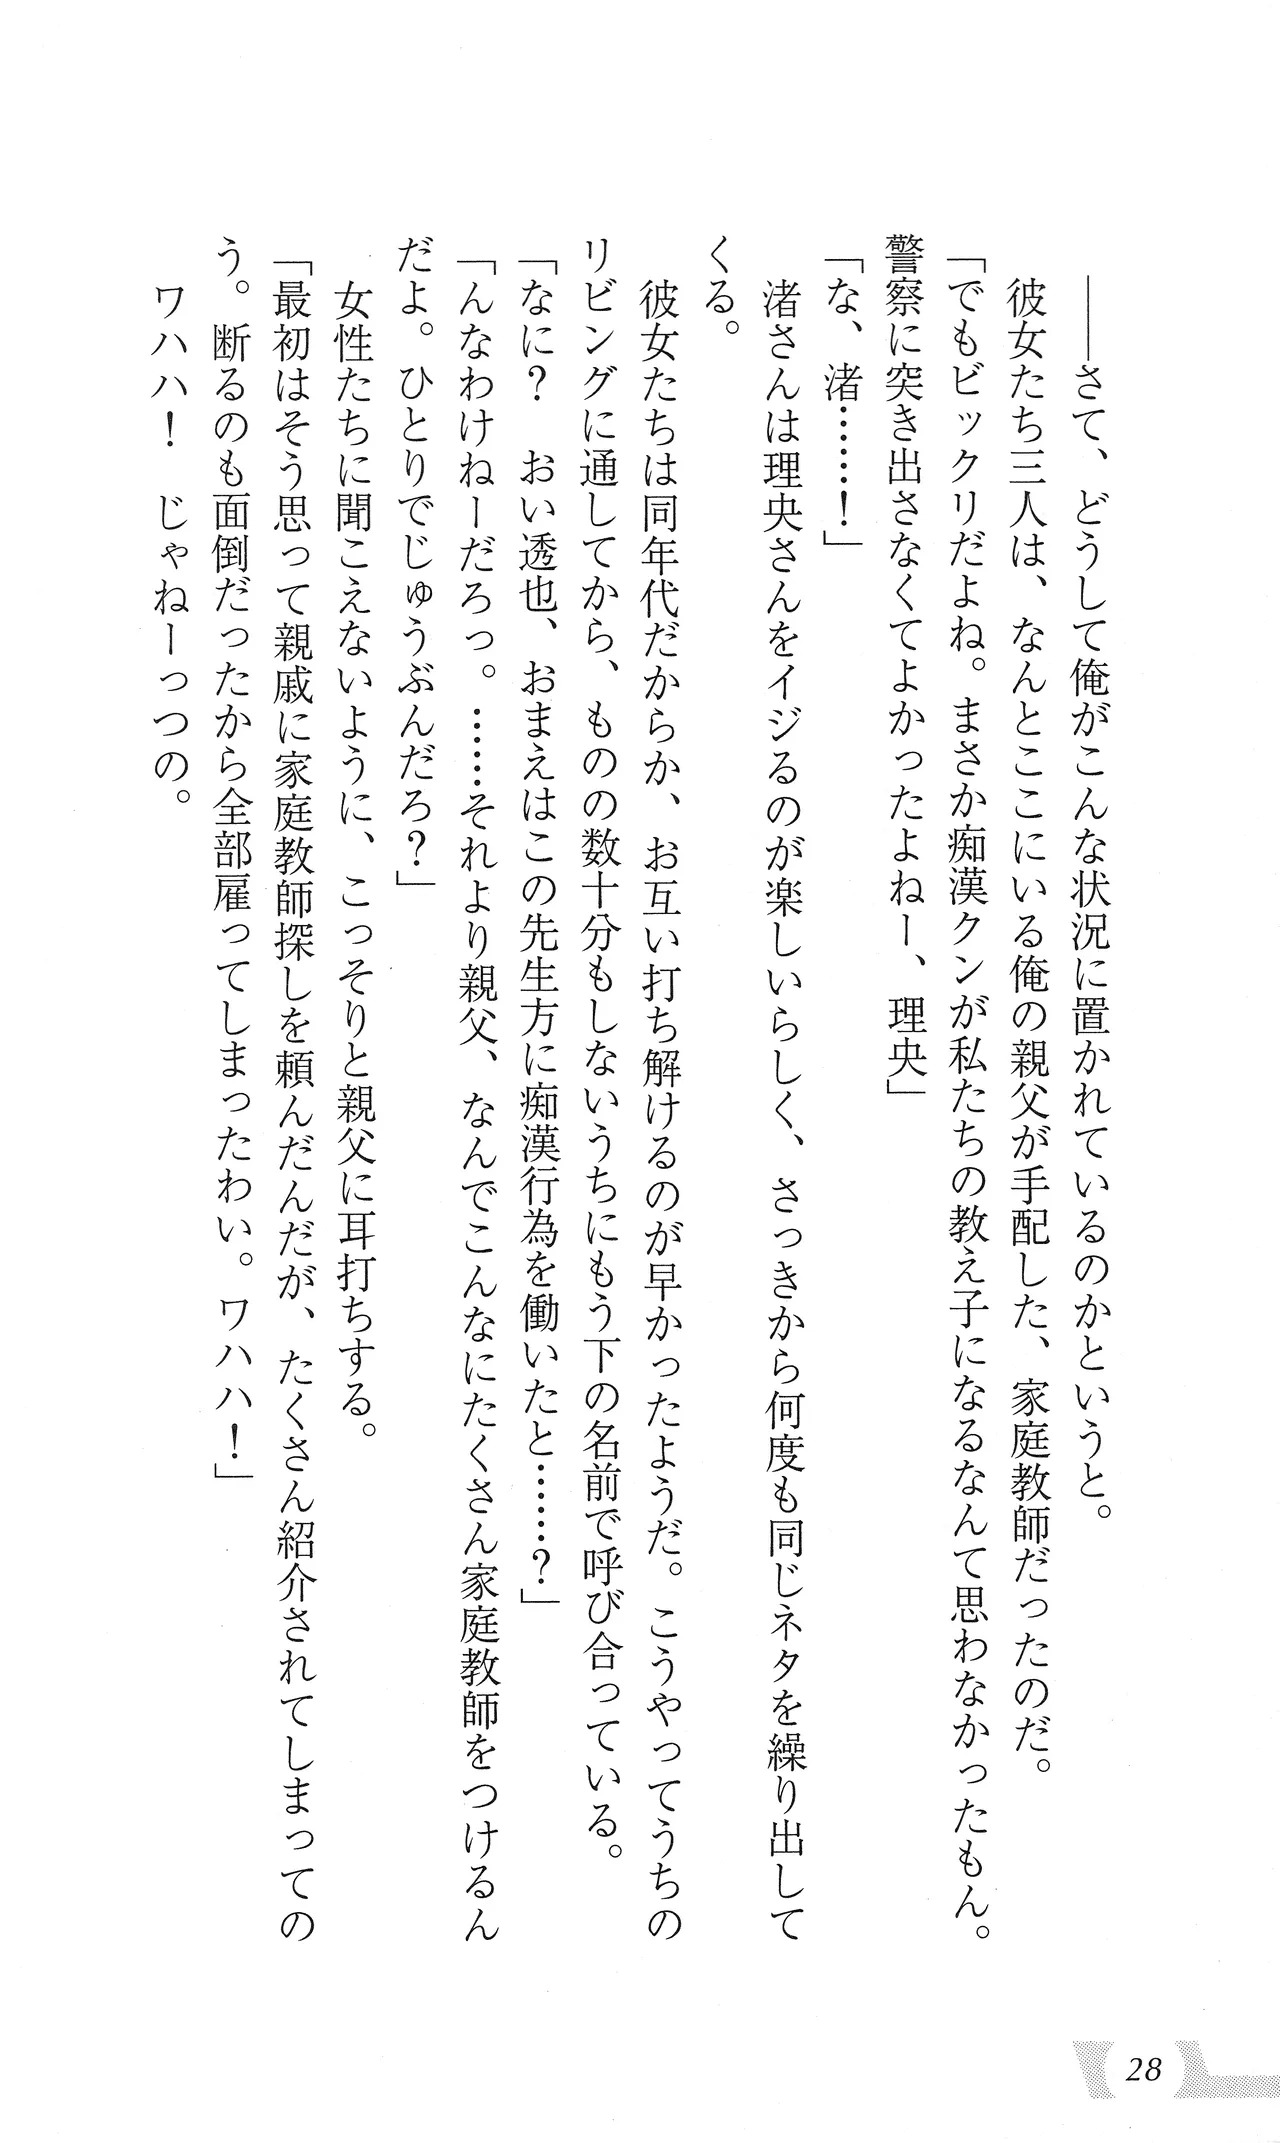 ――さて、どうして俺がこんな状況に置かれているのかというと。
彼女たち三人は、なんとここにいる俺の親父が手配した、家庭教師だったのだ。
「でもビックリだよね。まさか痴漢クンが私たちの教え子になるなんて思わなかったもん。
警察に突き出さなくてよかったよねー、理央」
「な、渚……！」
渚さんは理央さんをイジるのが楽しいらしく、さっきから何度も同じネタを繰り出して
くる。
彼女たちは同年代だからか、お互い打ち解けるのが早かったようだ。こうやってうちの
リビングに通してから、ものの数十分もしないうちにもう下の名前で呼び合っている。
「なに？　おい透也、おまえはこの先生方に痴漢行為を働いたと……？」
「んなわけねーだろっ。……それより親父、なんでこんなにたくさん家庭教師をつけるん
だよ。ひとりでじゅうぶんだろ？」
女性たちに聞こえないように、こっそりと親父に耳打ちする。
「最初はそう思って親戚に家庭教師探しを頼んだんだが、たくさん紹介されてしまっての
う。断るのも面倒だったから全部雇ってしまったわい。ワハハ！」
ワハハ！　じゃねーっつの。
28